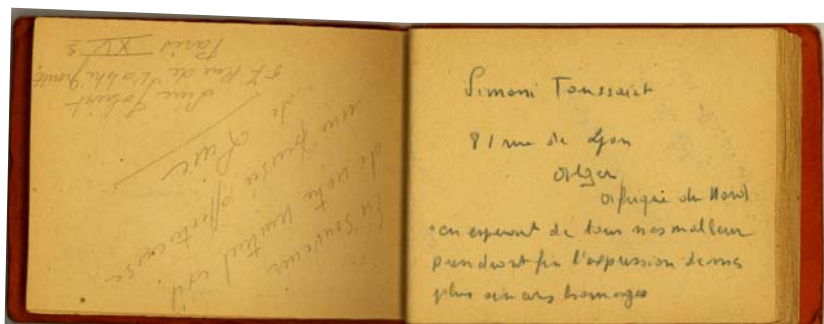 En souvenir
de notre mutuel exil
une pensée affectueuse
de Lucie
Lucie
57 Rue de l'Abbé Groult
Paris XV e
Simoni Toussaint
81 rue de Lyon
Alger
Afrique du Nord
en esperant de tous nos malheur
prendront fin l'expression de mes
plus sincers homages